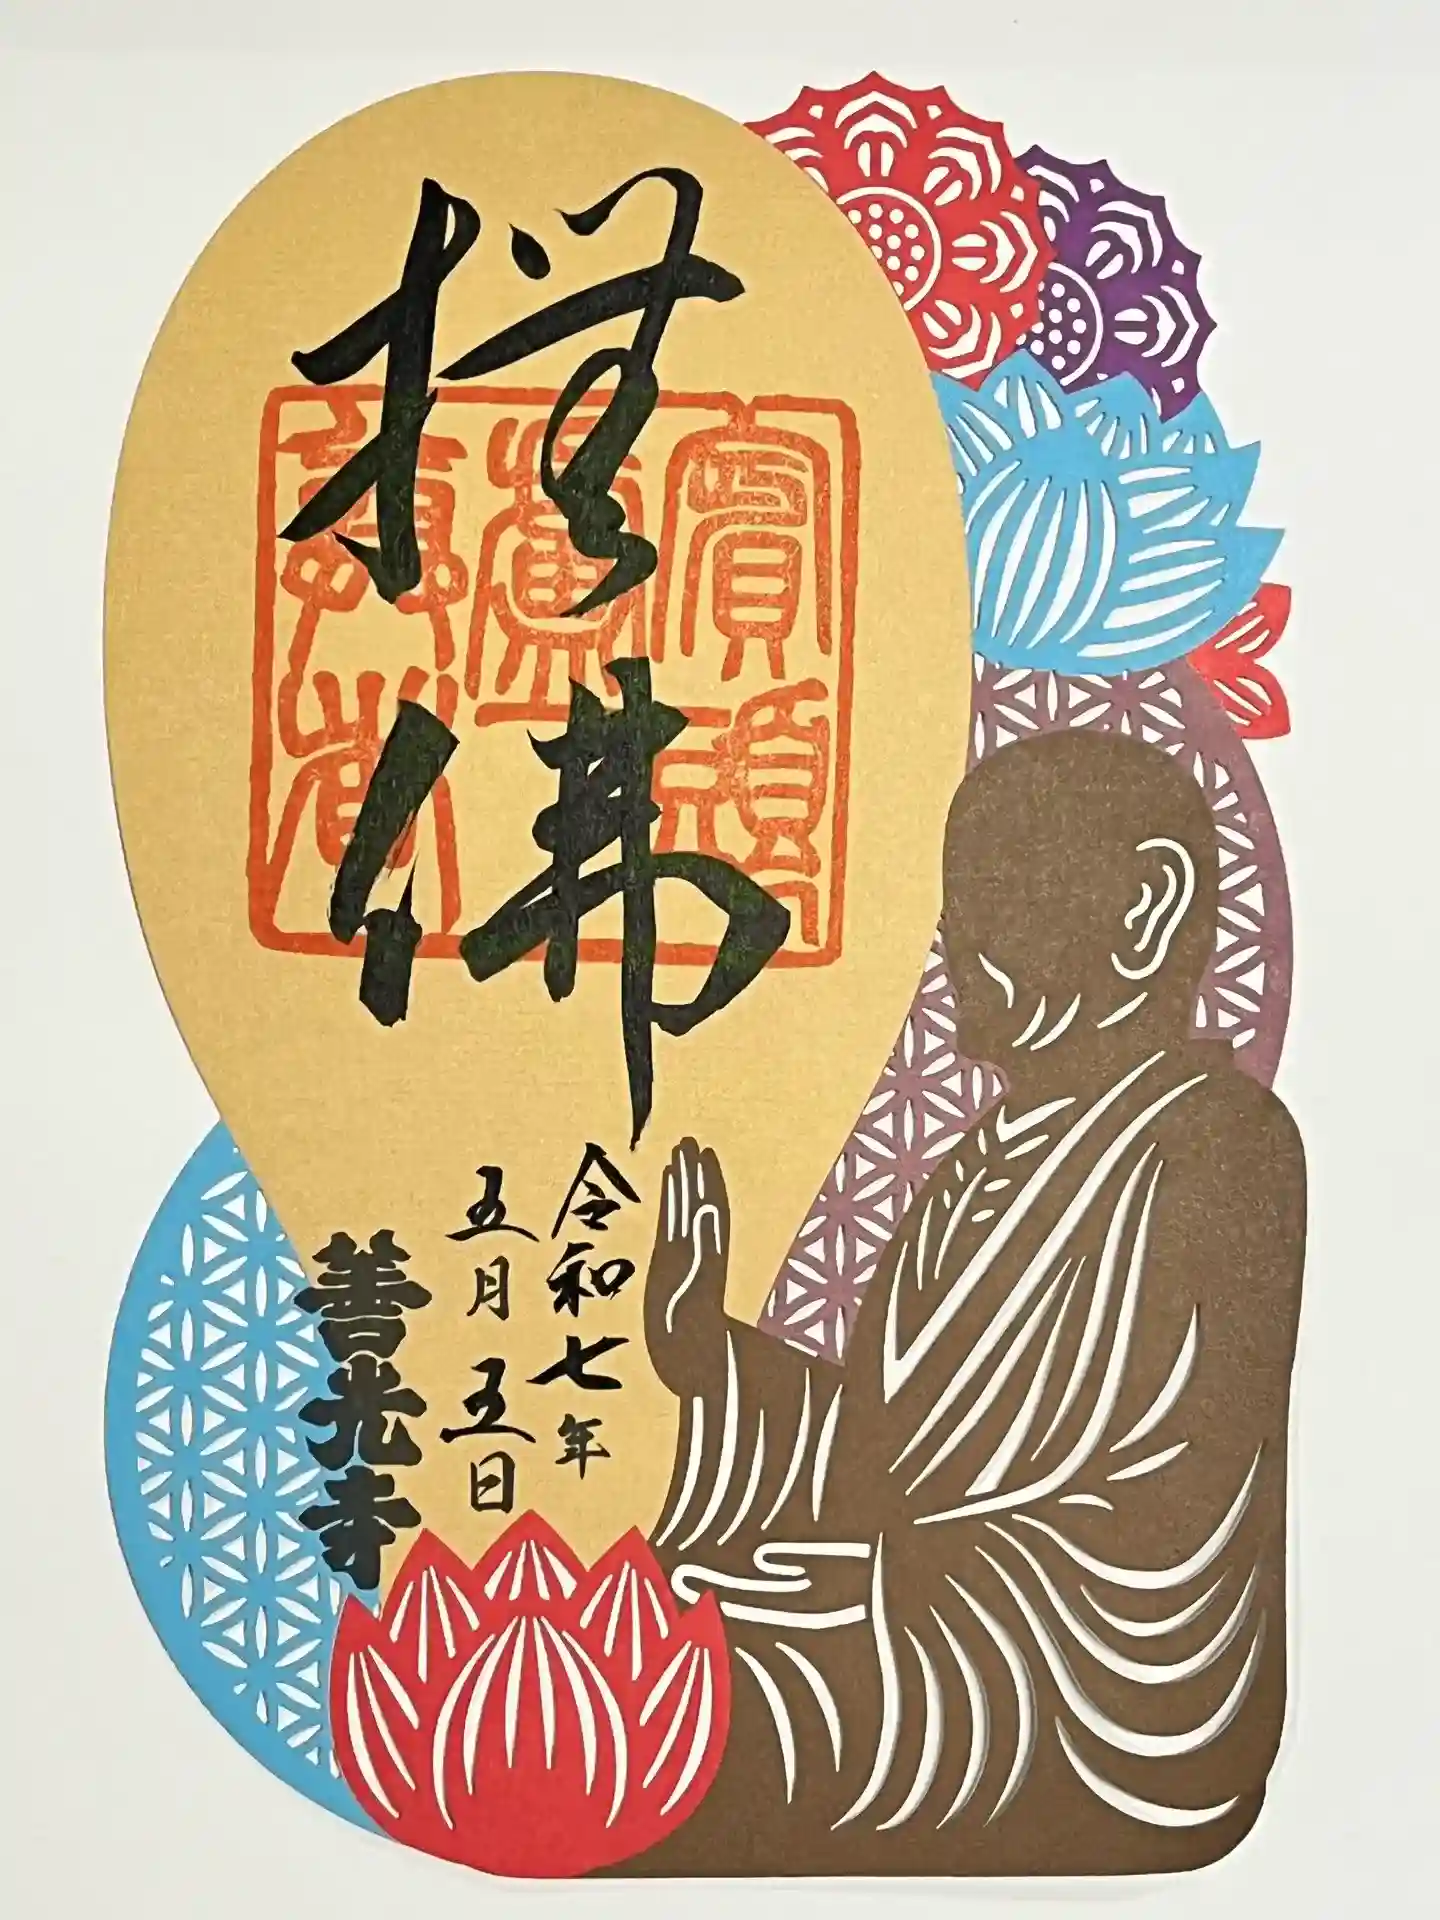 撫佛
賓頭
盧
尊者
令和七年
五月五日
善光寺